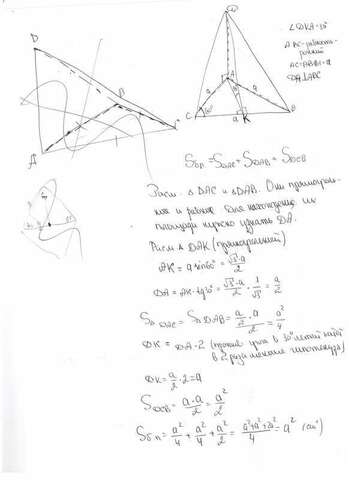 D
B
A
C
D
A
a
a
C
60°
B
a
K
∠DKA=30°
ABC-равносто-
ронний
AC=AB=BC=a
DA⊥ABC
Sбп = SDAC + SDAB + SDCB
Расм. △ DAC и △DAB. Они прямоуголь-
ные и равные. Для нахождения их
площади нужно узнать DA.
Расм △ DAK (прямоугольный)
AK = a sin60° = √3·a/2
DA = AK·tg30° = √3·a/2 · 1/√3 = a/2
S△ DAC = S△ DAB = a/2·a/2 = a²/4
DK = DA·2 (против угла в 30° лежит катет
в 2 раза меньше гипотенузы)
DK = a/2·2 = a
SDCB = a·a/2 = a²/2
Sбп = a²/4 + a²/4 + a²/2 = a²+a²+2a²/4 = a² (см²)